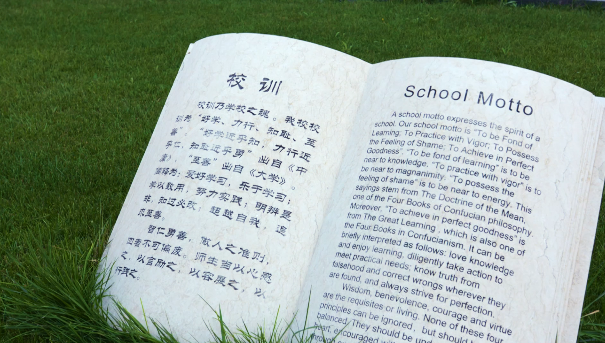 校 训
校训乃学校之魂。我校校
训为“好学、力行、知耻、至
善”。“好学近乎知，力行近
乎仁，知耻近乎勇”出自《中
庸》，“至善”出自《大学》。
释为：爱好学习，乐于学习；
学以致用，努力实践；明辨是
非，知过必改；超越自我，追
求至善。
智仁勇善，做人之准则，
四者不可偏废。师生当以心愿
之，以言励之，以容展之，以
行践之。
School Motto
A school motto expresses the spirit of a
school. Our school motto is "To be Fond of
Learning; To Practice with Vigor; To Possess
the Feeling of Shame; To Achieve in Perfect
Goodness". "To be fond of learning" is to be
near to knowledge, "to practice with vigor" is to
be near to magnanimity. "To possess the
feeling of shame" is to be near to energy. This
sayings stem from The Doctrine of the Mean,
one of the Four Books of Confucian philosophy.
Moreover, "To achieve in perfect goodness" is
from The Great Learning, which is also one of
the Four Books in Confucianism. It can be
briefly interpreted as follows: love knowledge
and enjoy learning, diligently take action to
meet practical needs; know truth from
falsehood and correct wrongs wherever they
are found, and always strive for perfection.
Wisdom, benevolence, courage and virtue
are the requisites or living. None of these four
principles can be ignored, but should be
balanced. They should be
heart, encouraged with
through